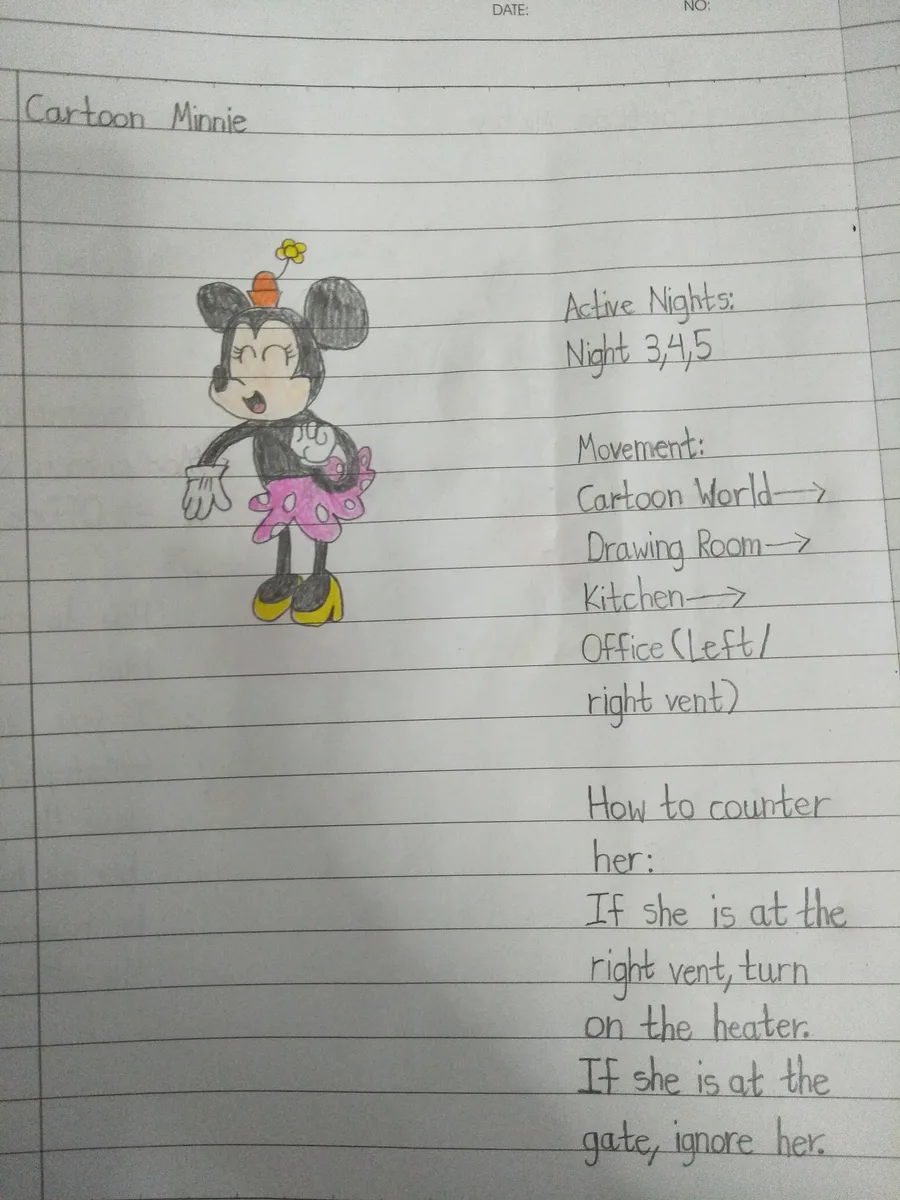 DATE:
NO:
Cartoon Minnie
Active Nights:
Night 3,4,5
Movement:
Cartoon World→
Drawing Room→
Kitchen→
Office (Left/
right vent)
How to counter
her:
If she is at the
right vent, turn
on the heater.
If she is at the
gate, ignore her.